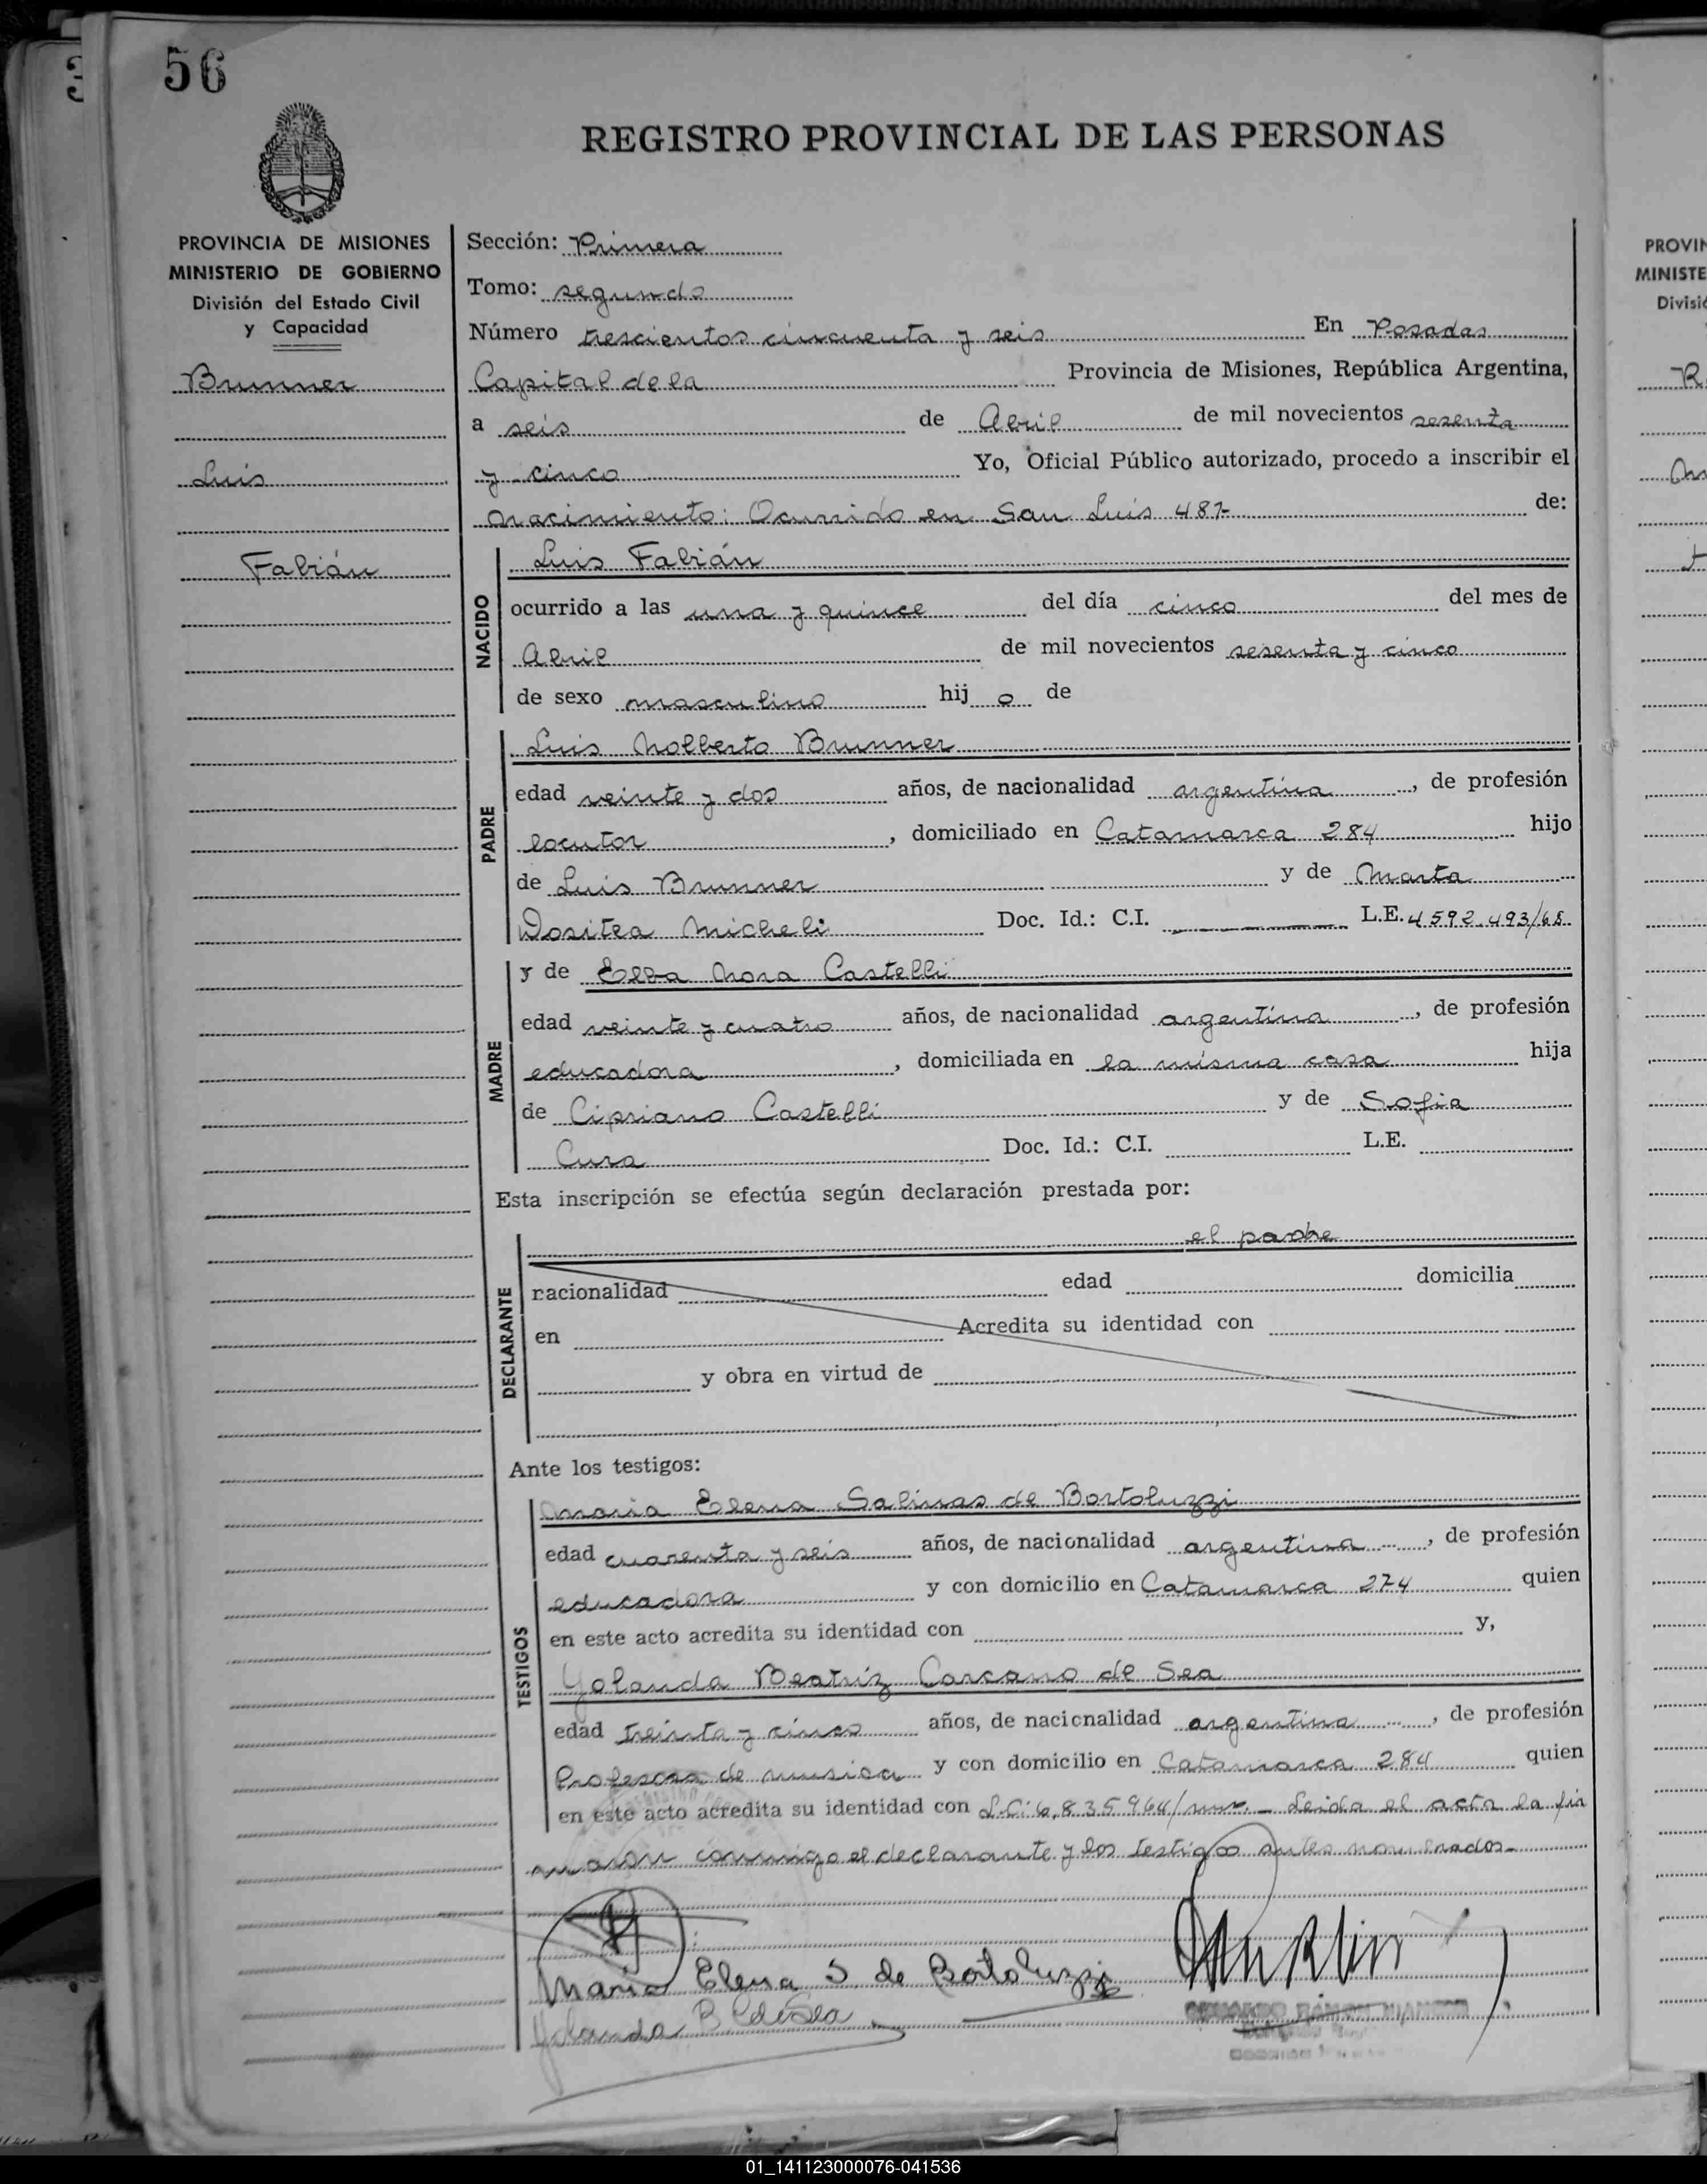 56
REGISTRO PROVINCIAL DE LAS PERSONAS
PROVINCIA DE MISIONES
MINISTERIO DE GOBIERNO
División del Estado Civil
y Capacidad
Brunner
Luis
Fabián
Sección: Primera
Tomo: segundo
Número trescientos cincuenta y seis En Posadas
Capital de la Provincia de Misiones, República Argentina,
a seis de Abril de mil novecientos sesenta
y cinco Yo, Oficial Público autorizado, procedo a inscribir el
nacimiento: Ocurrido en San Luis 487 de:
NACIDO
Luis Fabián
ocurrido a las una y quince del día cinco del mes de
Abril de mil novecientos sesenta y cinco
de sexo masculino hij o de
PADRE
Luis Nolberto Brunner
edad veinte y dos años, de nacionalidad argentina, de profesión
locutor, domiciliado en Catamarca 284 hijo
de Luis Brunner y de Marta
Dositea Micheli Doc. Id.: C.I. L.E. 4592.493/68
MADRE
y de Elba Nora Castelli
edad veinte y cuatro años, de nacionalidad argentina, de profesión
educadora, domiciliada en la misma casa hija
de Cipriano Castelli y de Sofia
Cura Doc. Id.: C.I. L.E.
Esta inscripción se efectúa según declaración prestada por:
DECLARANTE
el padre
nacionalidad edad domicilia
en Acredita su identidad con
y obra en virtud de
Ante los testigos:
TESTIGOS
Maria Elena Salinas de Bortoluzzi
edad cuarenta y seis años, de nacionalidad argentina, de profesión
educadora y con domicilio en Catamarca 274 quien
en este acto acredita su identidad con y,
Yolanda Beatriz Carcano de Sea
edad treinta y cinco años, de nacionalidad argentina, de profesión
Profesora de musica y con domicilio en Catamarca 284 quien
en este acto acredita su identidad con L.C: 6.835964/ Leida el acta la fir
maron conmigo el declarante y los testigos antes nombrados.
Maria Elena S de Bortoluzzi
Yolanda B C de Sea
EDUARDO RAMON
PROVIN
MINISTE
Divisió
01_141123000076-041536